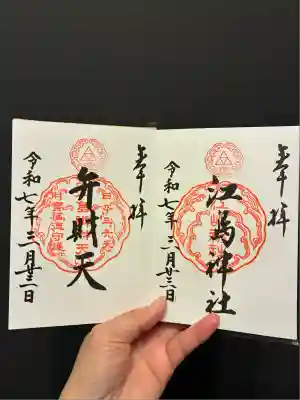 奉拝
江島神社
令和七年三月廿三日
奉拝
弁財天
令和七年三月廿三日